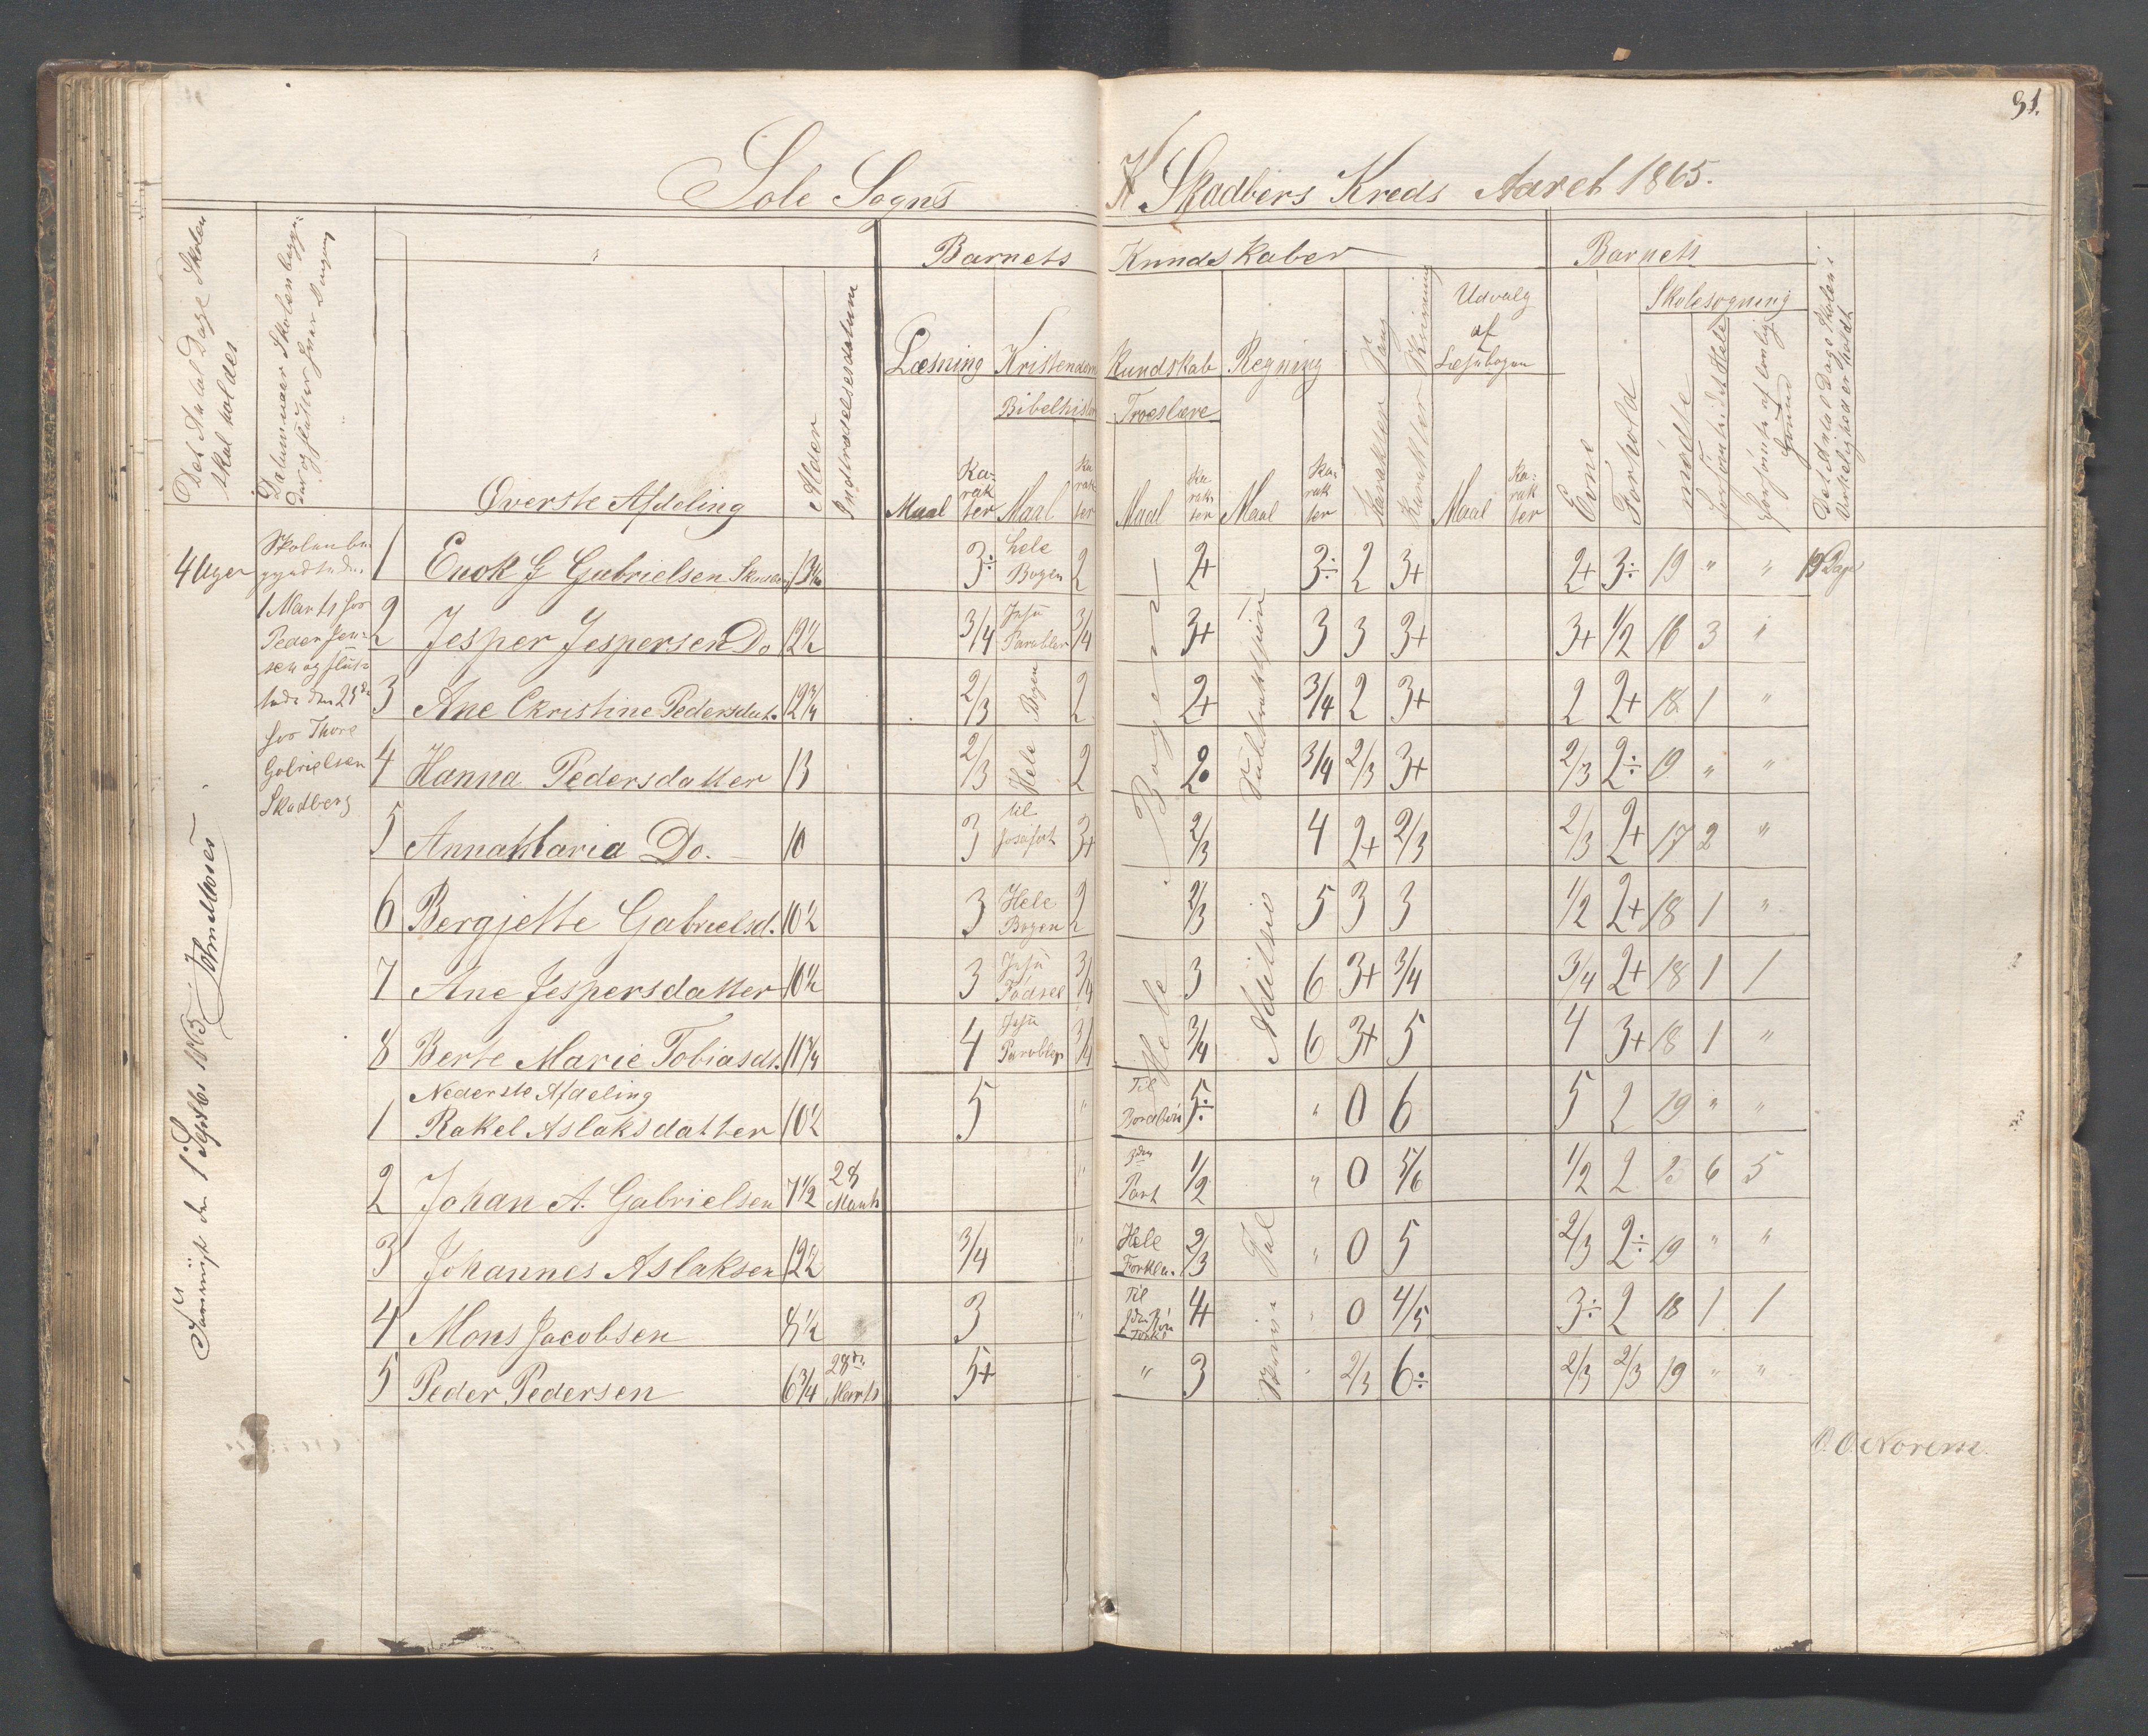 31.
Sole Sogns Skadbergs Kreds Aaret 1865.
Det Antal Dage Skolen skal holdes
Datum naar Skolen begyn-
der og slutter hver Omgang
Øverste Afdeling
Alder
Indtrædelsesdatum
Barnets Kundskaber
Læsning
Kristendom Kundskab
Bibelhistor
Troeslære
Regning
Sang
Skrivning
Udvalg
af
Læsebogen
Maal
Ka-
rak
ter
Maal
Ka
rak-
ter
Maal
Ka
rak
ter
Maal
Ka-
rak
ter
Karakter
Karakter
Maal
Ka-
rak
ter
Barnets
Evne
Forhold
Skolesøgning
mødte
forsømt i det Hele
forsømte af lovlig Grund
Det Antal Dage Skolen i
Virkelighed er holdt
4 Uger
Skolen be-
gyndte den
1 Marts hos
Peder Jen-
sen og slut-
tede den 28de
hos Thore
Gabrielsen
Skadberg
1 Enok G Gabrielsen Skadberg 13 3÷ hele Bogen 2 2+ 3÷ 2 3+ 2+ 3÷ 19 " " 19 Dage
2 Jesper Jespersen Do 12½ 3/4 Jesu Parabler 3/4 3+ 3 3 3+ 3+ 1/2 16 3 "
3 Ane Christine Pedersdat. 12¾ 2/3 2 2+ 3/4 2 3+ 2 2+ 18 1 "
4 Hanna Pedersdatter 13 2/3 Hele Bogen 2 2 3/4 2/3 3+ 2/3 2÷ 19 " "
5 Anna Maria Do. 10 3 til Josafat 3+ 2/3 4 2+ 2/3 2/3 2+ 17 2 "
6 Bergjette Gabrielsd. 10½ 3 Hele Bogen 2 2/3 5 3 3 1/2 2+ 18 1 "
7 Ane Jespersdatter 10½ 3 Jesu Fødsel 3/4 3 6 3+ 3/4 3/4 2+ 18 1 1
8 Berte Marie Tobiasdt. 11¾ 4 Jesu Parabler 3/4 3/4 6 3+ 5 4 3+ 18 1 "
Hele Bogen
Additsio Subtraktsjion
Nederste Afdeling
1 Rakel Aslaksdatter 10½ 5 " Til Bordbøn 5÷ " 0 6 5 2 19 " "
2 Johan A. Gabrielsen 7½ 28 Marts " 3den Part 1/2 " 0 5/6 1/2 2 6 5
3 Johannes Aslaksen 12½ 3/4 " Hele Forkla. 2/3 " 0 5 2/3 2÷ 19 " "
4 Mons Jacobsen 8½ 3 " Til 4+ " 0 4/5 3÷ 2 18 1 1
5 Peder Pedersen 6¾ 28de Marts 5+ " 3 " 2/3 6÷ 2/3 2/3 19 " "
Tal
O. O. Norem.
den 1 Septbr 1865.